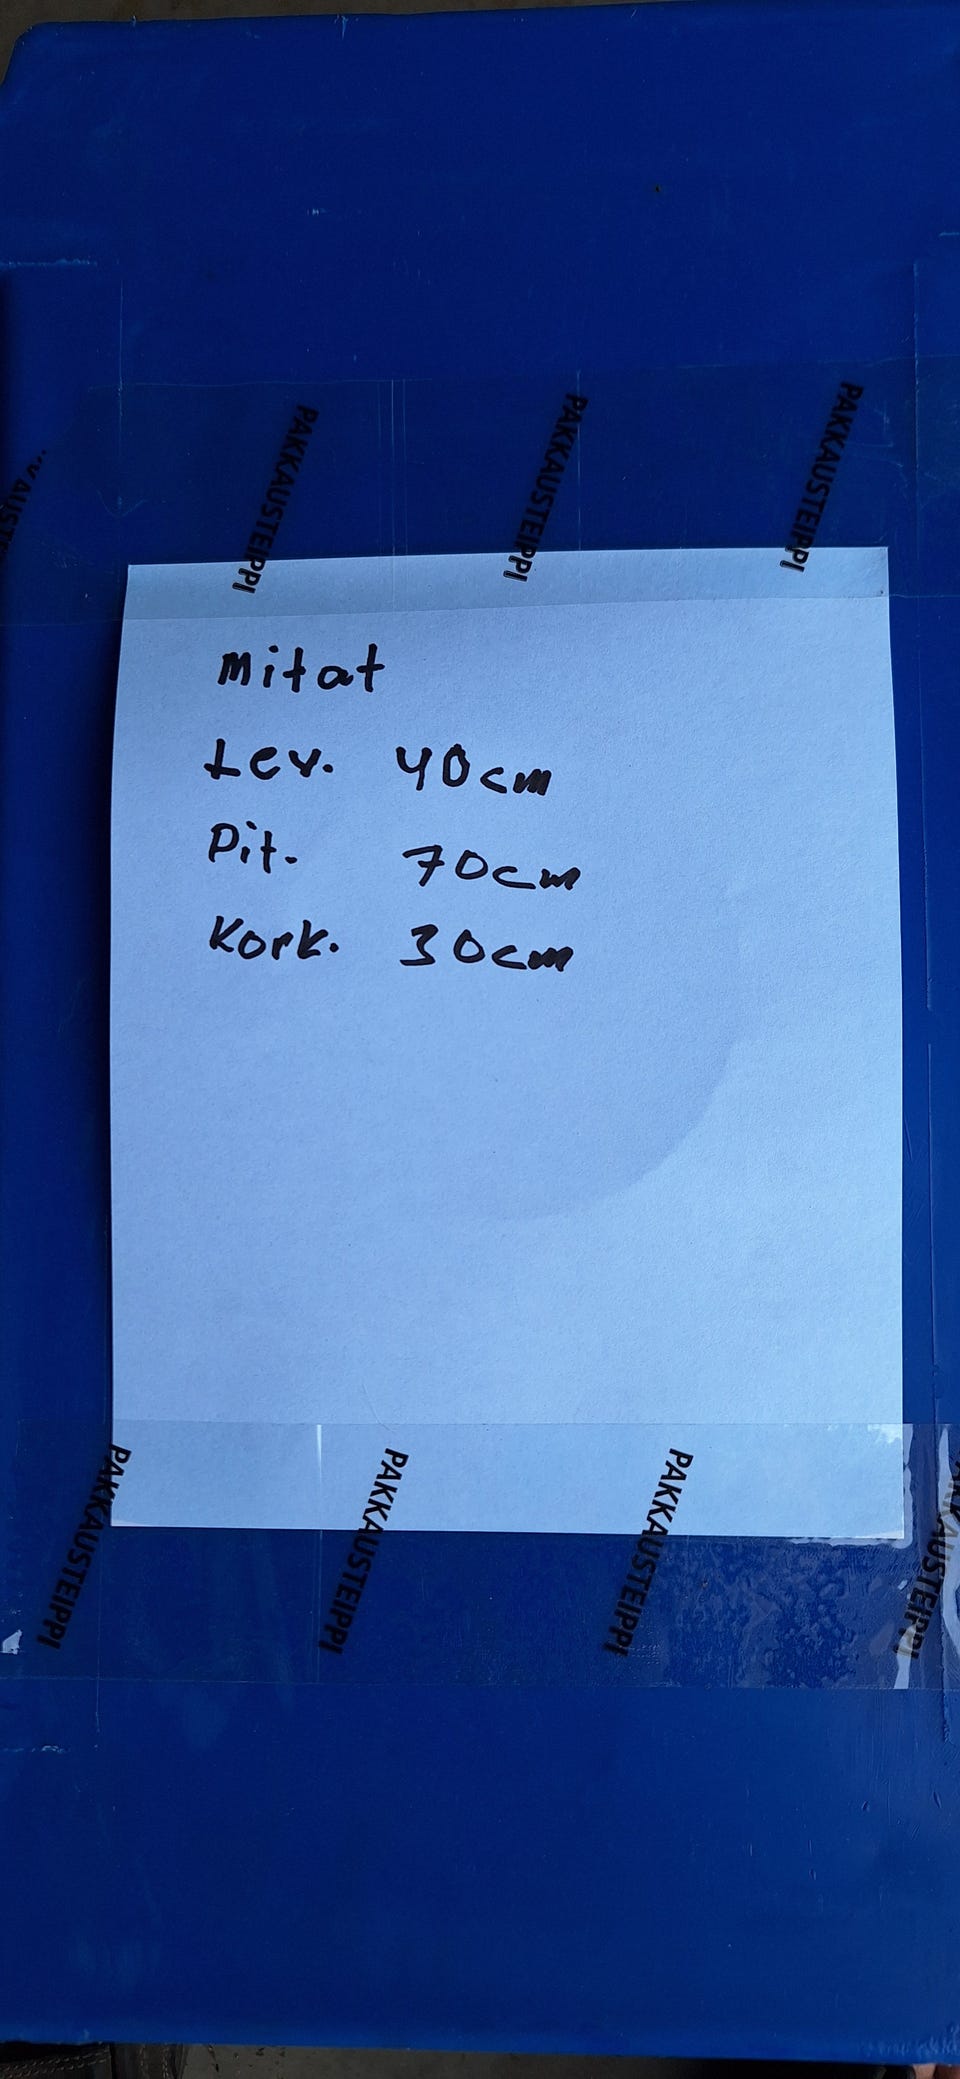 PAKKAUSTEIPPI PAKKAUSTEIPPI PAKKAUSTEIPPI
Mitat
Lev. 40cm
Pit. 70cm
Kork. 30cm
PAKKAUSTEIPPI PAKKAUSTEIPPI PAKKAUSTEIPPI